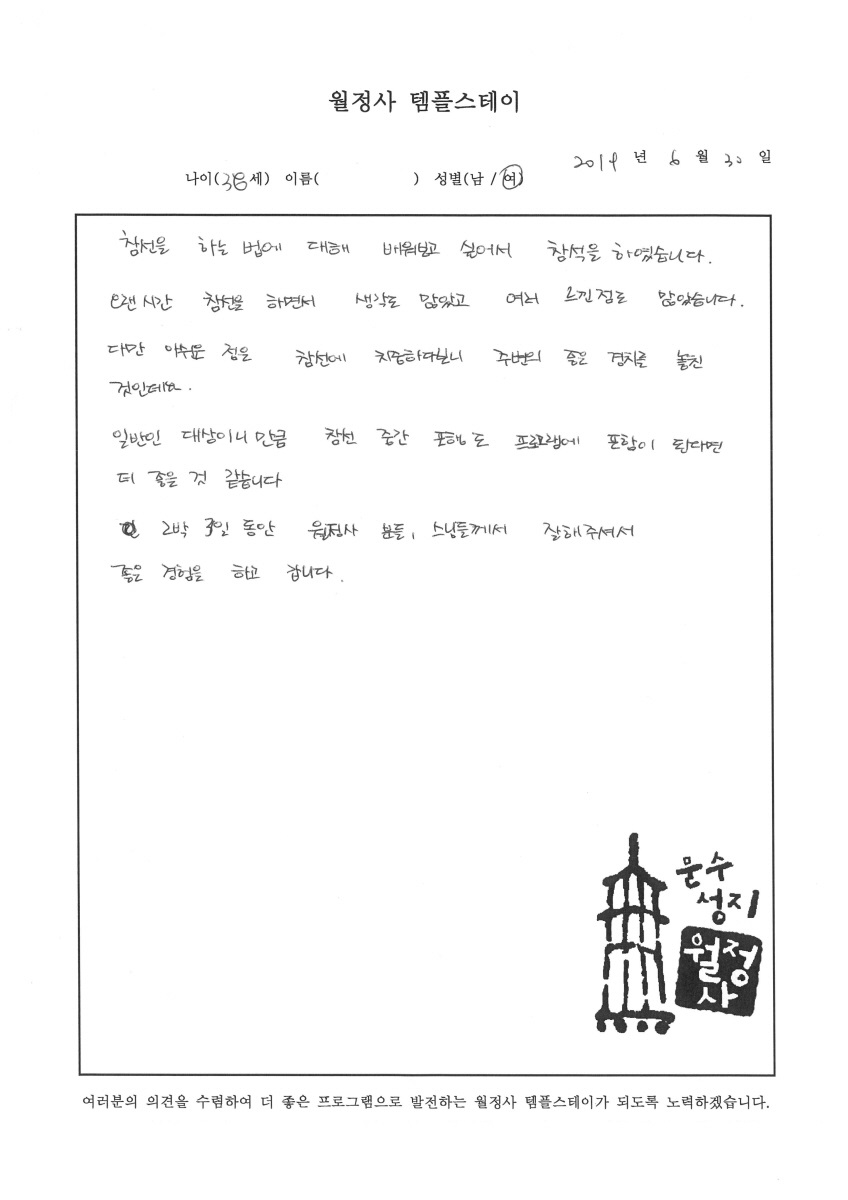 월정사 템플스테이
2014 년 6 월 30 일
나이(38세) 이름( ) 성별(남 / 여)
참선을 하는 법에 대해 배워보고 싶어서 참석을 하였습니다.
오랜 시간 참선을 하면서 생각도 많았고 여러 느낀점도 많았습니다.
다만 아쉬운 점은 참선에 치중하다보니 주변의 좋은 경치를 놓친
것인데요.
일반인 대상이니 만큼 참선 중간 포행도 프로그램에 포함이 된다면
더 좋을 것 같습니다
2박 3일 동안 월정사 분들, 스님들께서 잘해주셔서
좋은 경험을 하고 갑니다.
문수
성지
월정
사
여러분의 의견을 수렴하여 더 좋은 프로그램으로 발전하는 월정사 템플스테이가 되도록 노력하겠습니다.